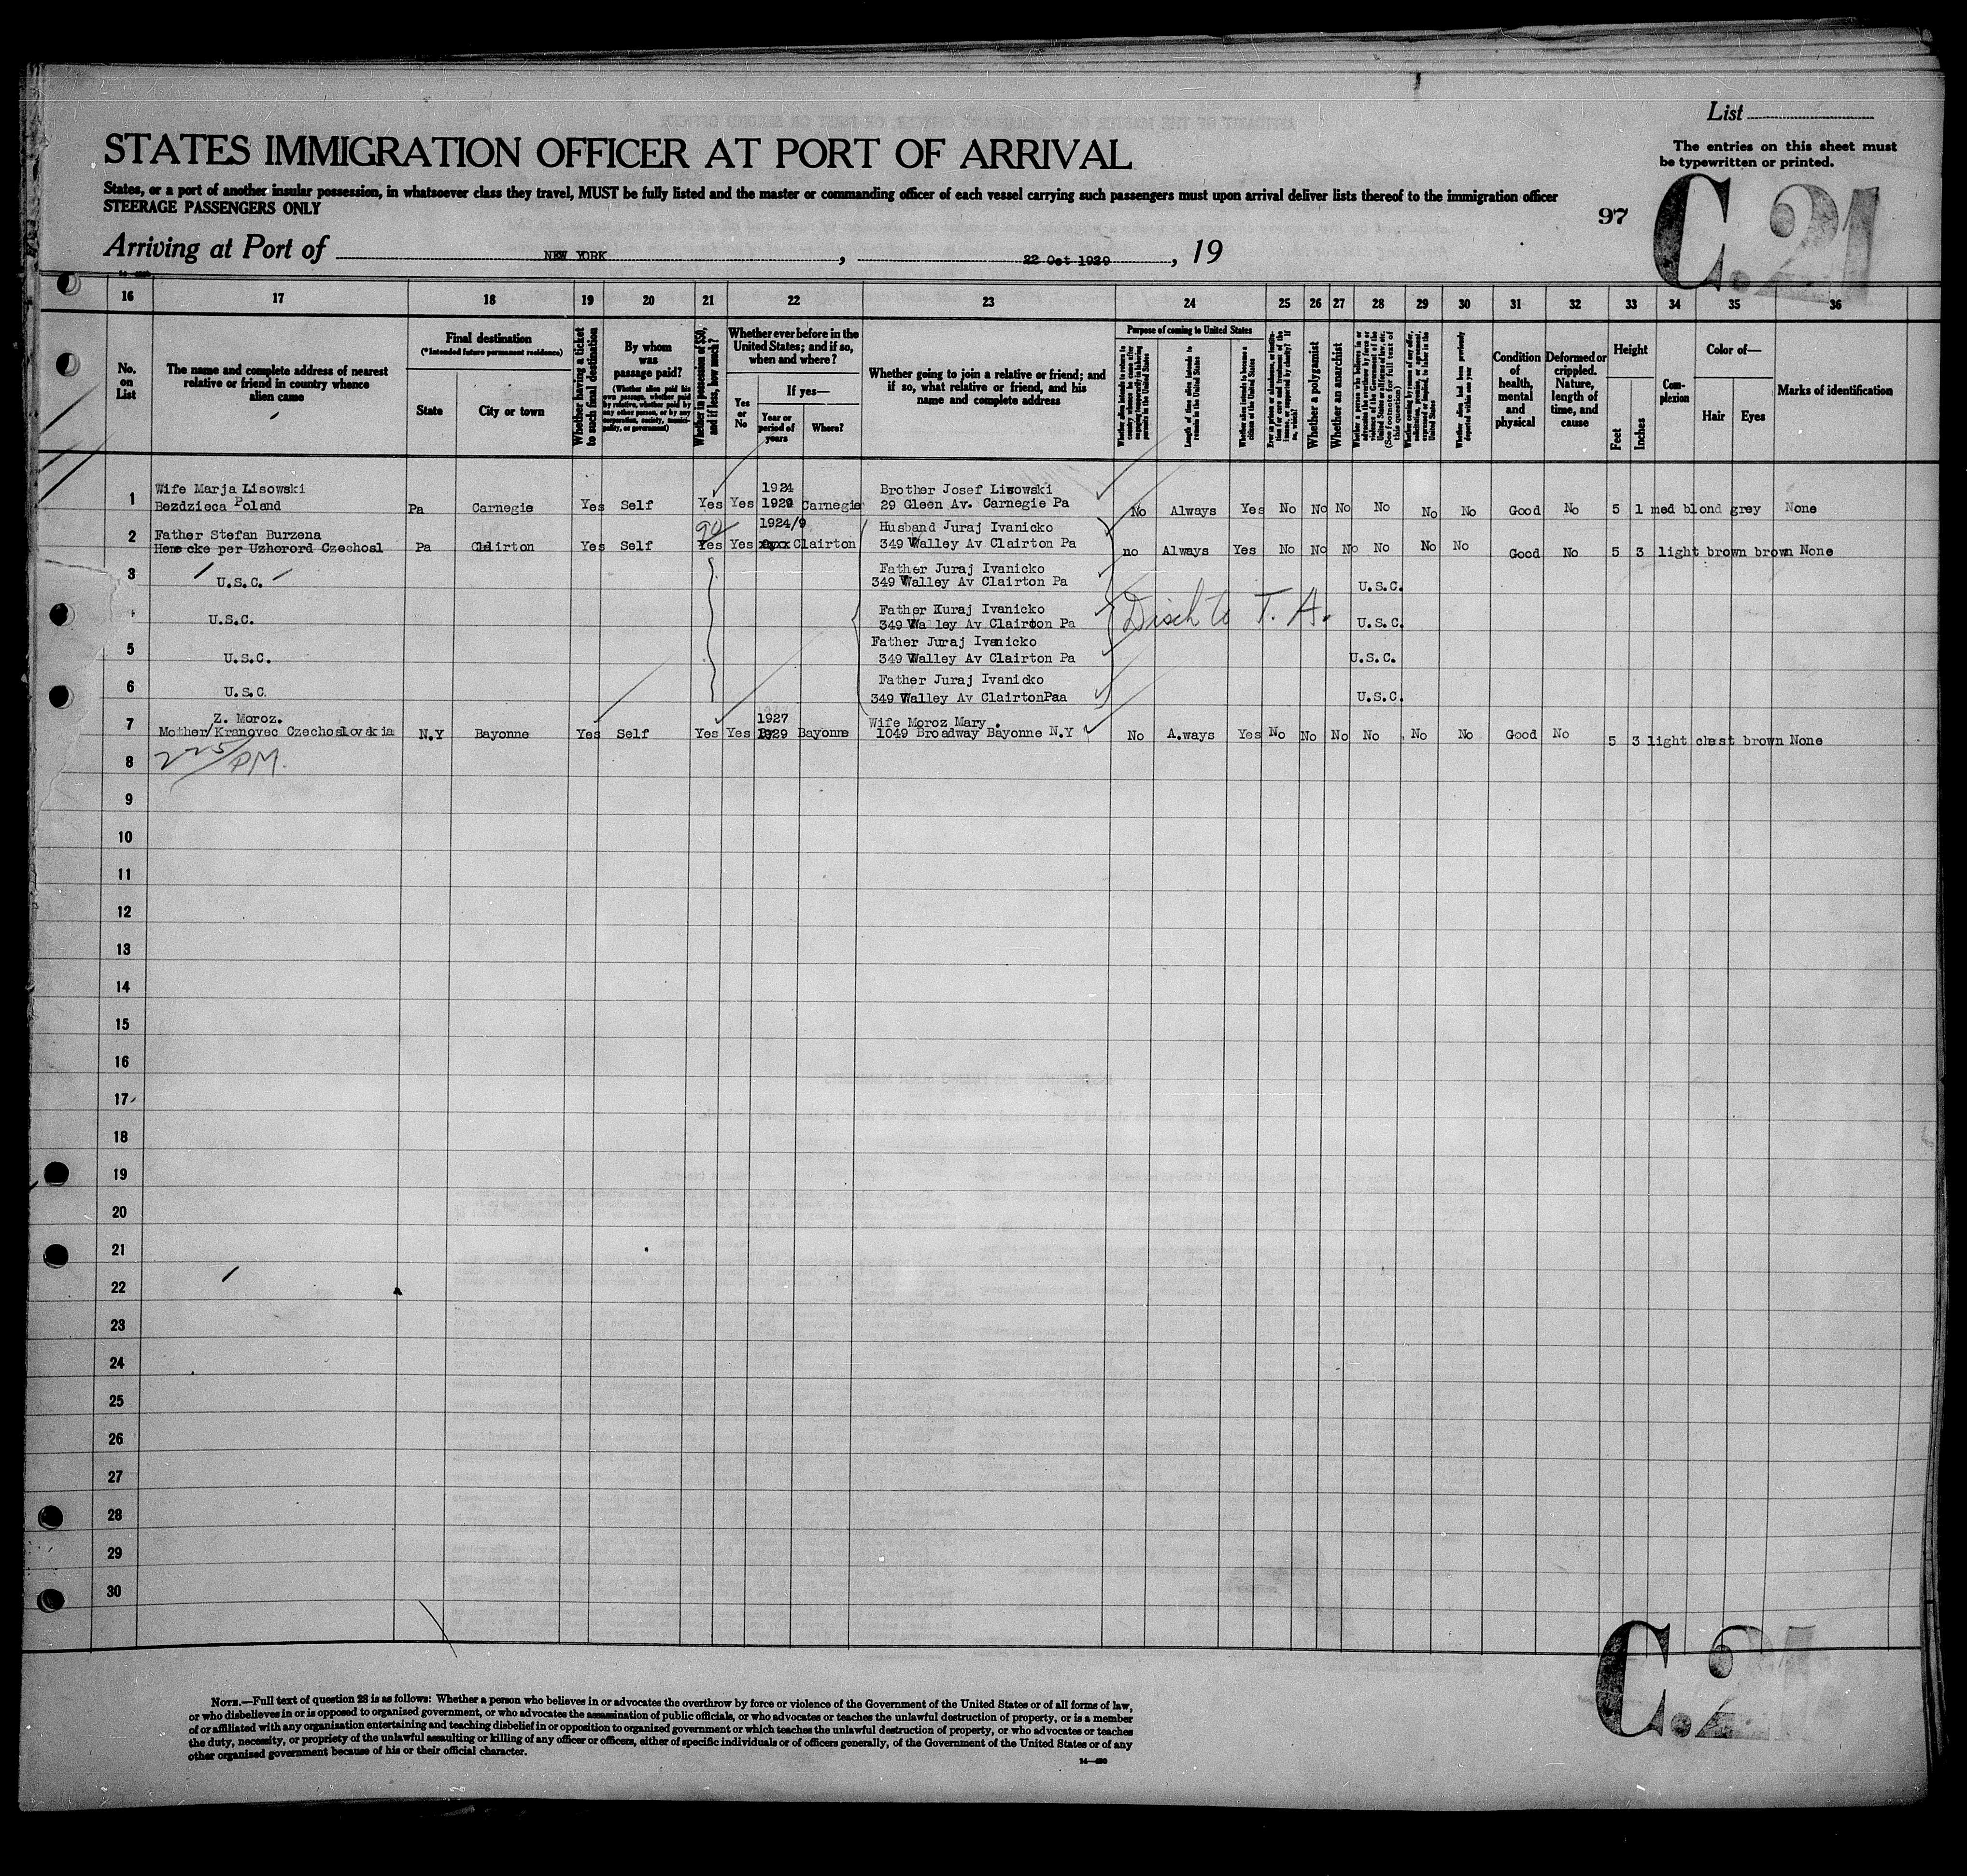 List
The entries on this sheet must
be typewritten or printed.
STATES IMMIGRATION OFFICER AT PORT OF ARRIVAL
States, or a port of another insular possession, in whatsoever class they travel, MUST be fully listed and the master or commanding officer of each vessel carrying such passengers must upon arrival deliver lists thereof to the immigration officer
STEERAGE PASSENGERS ONLY
97
C.21
Arriving at Port of NEW YORK, 22 Oct 1929, 19
16 17 18 19 20 21 22 23 24 25 26 27 28 29 30 31 32 33 34 35 36
No. on List
The name and complete address of nearest relative or friend in country whence alien came
Final destination
(*Intended future permanent residence)
State
City or town
Whether having a ticket to such final destination
By whom was passage paid?
(Whether alien paid his own passage, whether paid by relative, whether paid by any other person, or by any corporation, society, municipality, or government)
Whether in possession of $50, and if less, how much?
Whether ever before in the United States; and if so, when and where?
Yes or No
If yes—
Year or period of years
Where?
Whether going to join a relative or friend; and if so, what relative or friend, and his name and complete address
Purpose of coming to United States
Length of time alien intends to remain in the United States
Whether alien intends to become a citizen of the United States
Whether a polygamist
Whether an anarchist
Condition of health, mental and physical
Deformed or crippled. Nature, length of time, and cause
Height
Feet
Inches
Complexion
Color of—
Hair
Eyes
Marks of identification
1 Wife Marja Lisowski 1924 Brother Josef Lisowski
Bezdzieca Poland Pa Carnegie Yes Self Yes Yes 1929 Carnegie 29 Gleen Av. Carnegie Pa No Always Yes No No No No No No Good No 5 1 med blond grey None
2 Father Stefan Burzena 90 1924/9 Husband Juraj Ivanicko
per Uzhorord Czechosl Pa Clairton Yes Self Yes Yes Clairton 349 Walley Av Clairton Pa no Always Yes No No No No No No Good No 5 3 light brown brown None
3 U.S.C. Father Juraj Ivanicko
349 Walley Av Clairton Pa U.S.C.
U.S.C. Father Kuraj Ivanicko
349 Wa ley Av Clairton Pa Disch to T. A. U.S.C.
5 U.S.C. Father Juraj Ivanicko
349 Walley Av Clairton Pa U.S.C.
6 U.S.C. Father Juraj Ivanicko
349 Walley Av ClairtonPaa U.S.C.
7 Z. Moroz. 1927 Wife Moroz Mary.
Mother/Kranovec Czechoslovakia N.Y Bayonne Yes Self Yes Yes 1929 Bayonne 1049 Broadway Bayonne N.Y No A.ways Yes No No No No No No Good No 5 3 light chest brown None
8 225/PM.
9
10
11
12
13
14
15
16
17
18
19
20
21
22
23
24
25
26
27
28
29
30
C.21
NOTE.—Full text of question 28 is as follows: Whether a person who believes in or advocates the overthrow by force or violence of the Government of the United States or of all forms of law,
or who disbelieves in or is opposed to organized government, or who advocates the assassination of public officials, or who advocates or teaches the unlawful destruction of property, or is a member
of or affiliated with any organization entertaining and teaching disbelief in or opposition to organized government or which teaches the unlawful destruction of property, or who advocates or teaches
the duty, necessity, or propriety of the unlawful assaulting or killing of any officer or officers, either of specific individuals or of officers generally, of the Government of the United States or of any
other organized government because of his or their official character.
14—430